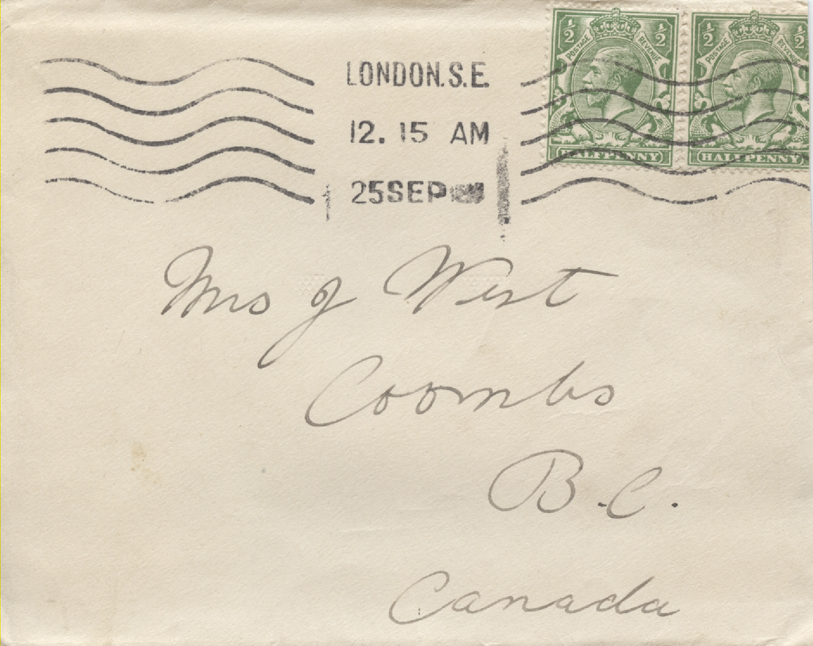 LONDON.S.E.
12. 15 AM
25SEP
½ ½ ½ ½
POSTAGE REVENUE POSTAGE REVENUE
HALFPENNY HALFPENNY
Mrs J West
Coombs
B.C.
Canada